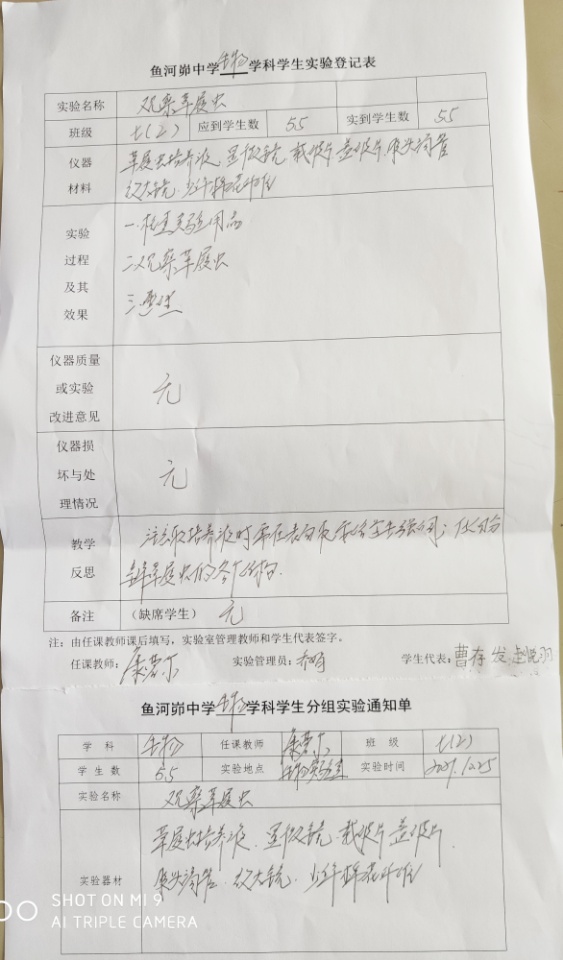 鱼河峁中学生物学科学生实验登记表
实验名称 观察草履虫
班级 七(2) 应到学生数 55 实到学生数 55
仪器 草履虫培养液 显微镜 载玻片 盖玻片 胶头滴管
材料 放大镜 少许棉花纤维
实验 一.检查实验用品
过程 二.观察草履虫
及其
效果 三.整理
仪器质量
或实验 无
改进意见
仪器损
坏与处 无
理情况
教学 注意取培养液时要在表层
反思 草履虫的各个结构.
备注 (缺席学生) 无
注：由任课教师课后填写，实验室管理教师和学生代表签字。
任课教师： 实验管理员： 学生代表：曹存发
鱼河峁中学生物学科学生分组实验通知单
学 科 生物 任课教师 班 级 七(2)
学 生 数 55 实验地点 生物实验室 实验时间 2021.12.25
实验名称 观察草履虫
草履虫培养液 显微镜 载玻片 盖玻片
实验器材 胶头滴管 放大镜 少许棉花纤维
SHOT ON MI 9
AI TRIPLE CAMERA